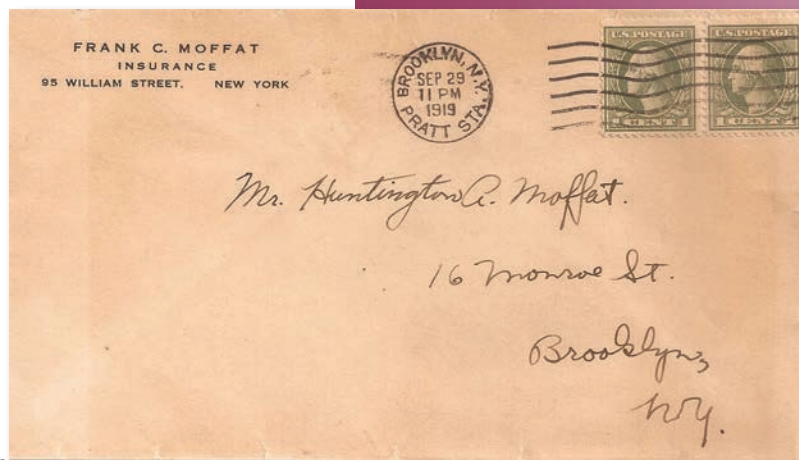 FRANK C. MOFFAT
INSURANCE
95 WILLIAM STREET. NEW YORK
BROOKLYN, N.Y.
SEP 29
11 PM
1919
PRATT STA.
U.S. POSTAGE
U.S. POSTAGE
1 CENT 1
1 CENT
Mr. Huntington A. Moffat.
16 Monroe St.
Brooklyn,
N.Y.